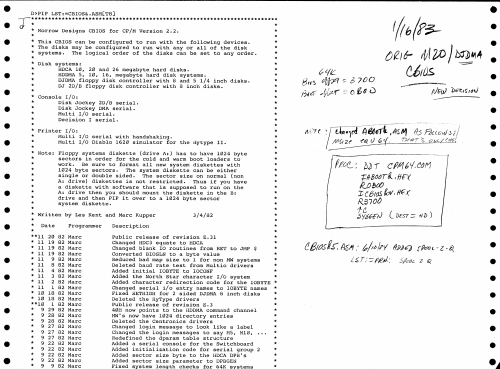 D>PIP LST:=CBIOS4.ASM[T8]
Morrow Designs CBIOS for CP/M Version 2.2:
This CBIOS can be configured to run with the following devices.
The disks may be configured to run with any or all of the disk
systems. The logical order of the disks can be set to any order.
Disk systems:
HDCA 10, 20 and 26 megabyte hard disks.
HDDMA 5, 10, 16, megabyte hard disk systems.
DJDMA floppy disk controller with 8 and 5 1/4 inch disks.
DJ 2D/B floppy disk controller with 8 inch disks.
Console I/O:
Disk Jockey 2D/B serial.
Disk Jockey DMA serial.
Multi I/O serial.
Decision I serial.
Printer I/O:
Multi I/O serial with handshaking.
Multi I/O Diablo 1620 simulator for the Hytype II.
Note: Floppy systems diskette (drive A:) has to have 1024 byte
sectors in order for the cold and warm boot loaders to
work. Be sure to format all new system diskettes with
1024 byte sectors. The system diskette can be either
single or double sided. The sector size on normal (non
A: drive) diskettes is not restricted. Thus if you have
a diskette with software that is supposed to run on the
A: drive then you should mount the diskette in the B:
drive and then PIP it over to a 1024 byte sector
system diskette.
Written by Les Kent and Marc Kupper 3/4/82
Date Programmer Description
11 20 82 Marc Public release of revision E.31
11 19 82 Marc Changed HDC3 equate to HDCA
11 19 82 Marc Changed blank IO routines from RET to JMP $
11 19 82 Marc Converted BIOSLN to a byte value
11 9 82 Marc Reduced bad map size to 1 for non MW systems
11 8 82 Marc Deleted baud rate test from Multio drivers
11 4 82 Marc Added initial IOBYTE to IOCONF
11 3 82 Marc Added the North Star character I/O system
11 2 82 Marc Added character redirection code for the IOBYTE
11 1 82 Marc Changed serial i/o entry names to IOBYTE names
10 18 82 Marc Fixed SETHIGH for 2 sided DJDMA 8 inch disks
10 18 82 Marc Deleted the HyType drivers
10 1 82 Marc Public release of revision E.3
9 29 82 Marc 40H now points to the HDDMA command channel
9 28 82 Marc MW's now have 1024 directory entries
9 28 82 Marc Deleted the Centronics drivers
9 27 82 Marc Changed login message to look like a label
9 27 82 Marc Changed the login messages to say M5, M10, ...
9 27 82 Marc Redefined the dparam table structure
9 22 82 Marc Added a serial console for the Switchboard
9 22 82 Marc Added initialization code for serial group 2
9 22 82 Marc Added sector size byte to the HDCA DPB's
9 22 82 Marc Added sector size parameter to DPBGEN
9 9 82 Marc Fixed system length checks for 64K systems
1/16/83
ORIG M20/DJDMA
CBIOS
NEW DECISION
64K
= 3700
NOTE: ABOOT&.ASM AS FOLLOWS:
PROC: DDT CPM64.COM
IABOOT&.HEX
R0800
ICBIOS64.HEX
R3700
^C
SYSGEN (DEST = ND)
CBIOS&S.ASM: ADDED SPOOL-2-Q
LST:=PRN: SPOOL-2-Q